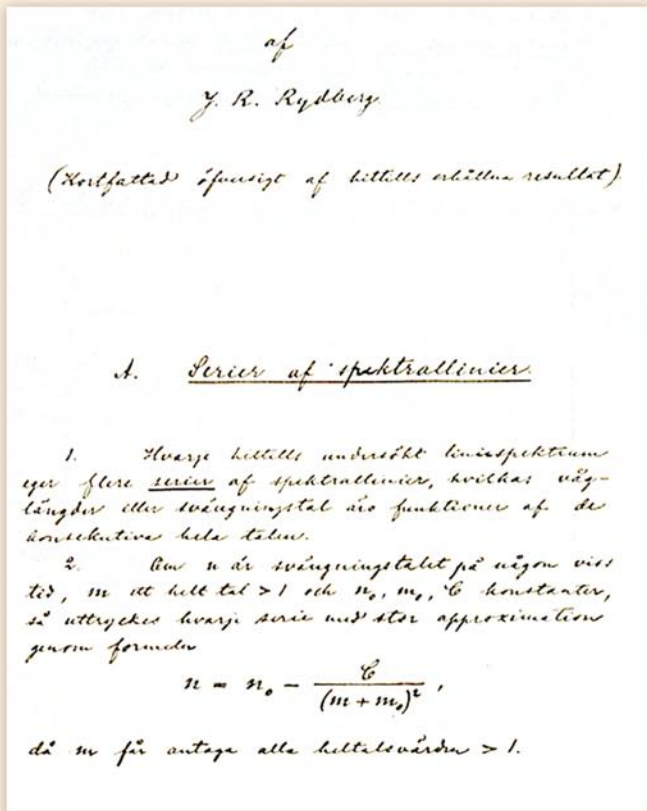 af
J. R. Rydberg.
(Kortfattad öfversigt af hittills erhållna resultat).
A. Serier af spektrallinier.
1. Hvarje hittills undersökt liniespektrum
eger flere serier af spektrallinier, hvilkas våg-
längder eller svängningstal äro funktioner af de
konsekutiva hela talen.
2. Om n är svängningstalet på någon viss
tid, m ett helt tal > 1 och n₀, m₀, C konstanter,
så uttryckes hvarje serie med stor approximation
genom formeln
n = n₀ - C/(m + m₀)²,
då m får antaga alla heltalsvärden > 1.